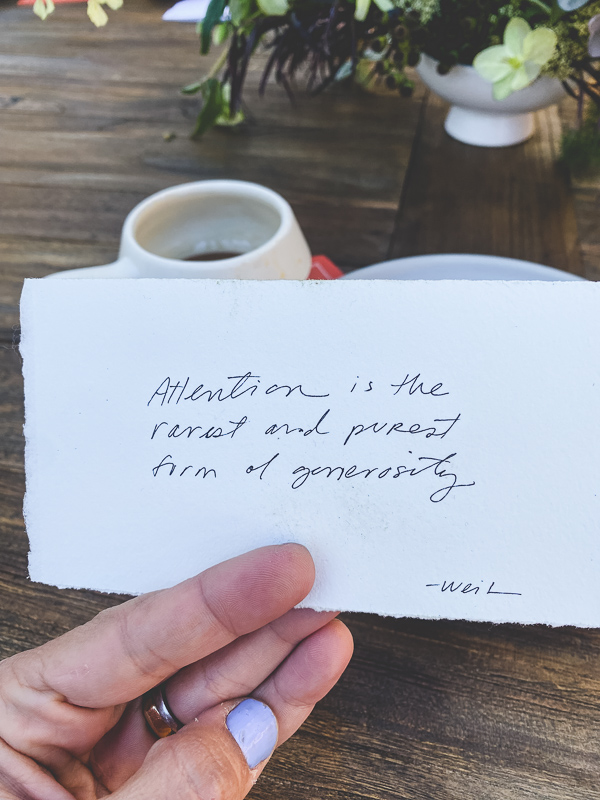 Attention is the
rarest and purest
form of generosity
-Weil